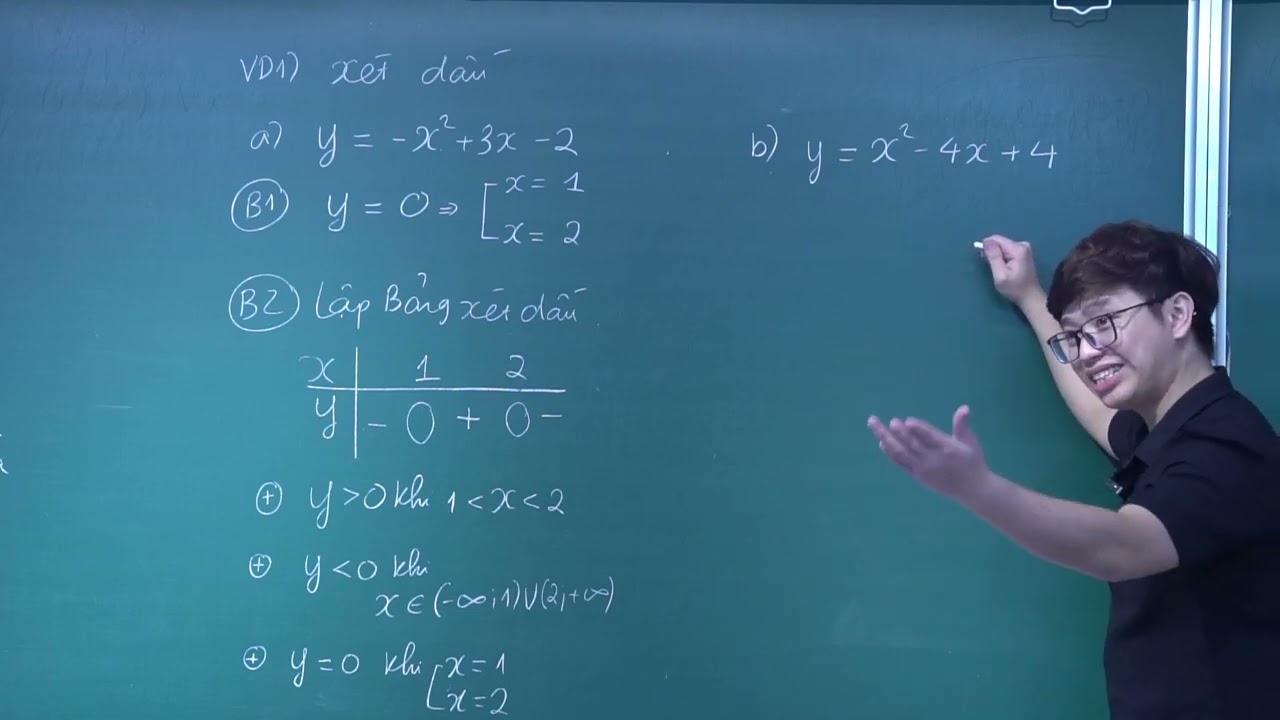 VD1) xét dấu
a) y = -x² + 3x - 2
B1 y = 0 ⇒ [ x = 1
x = 2
B2 Lập Bảng xét dấu
x | 1 2
y | - 0 + 0 -
⊕ y > 0 khi 1 < x < 2
⊕ y < 0 khi
x ∈ (-∞; 1) ∪ (2; +∞)
⊕ y = 0 khi [ x = 1
x = 2
b) y = x² - 4x + 4